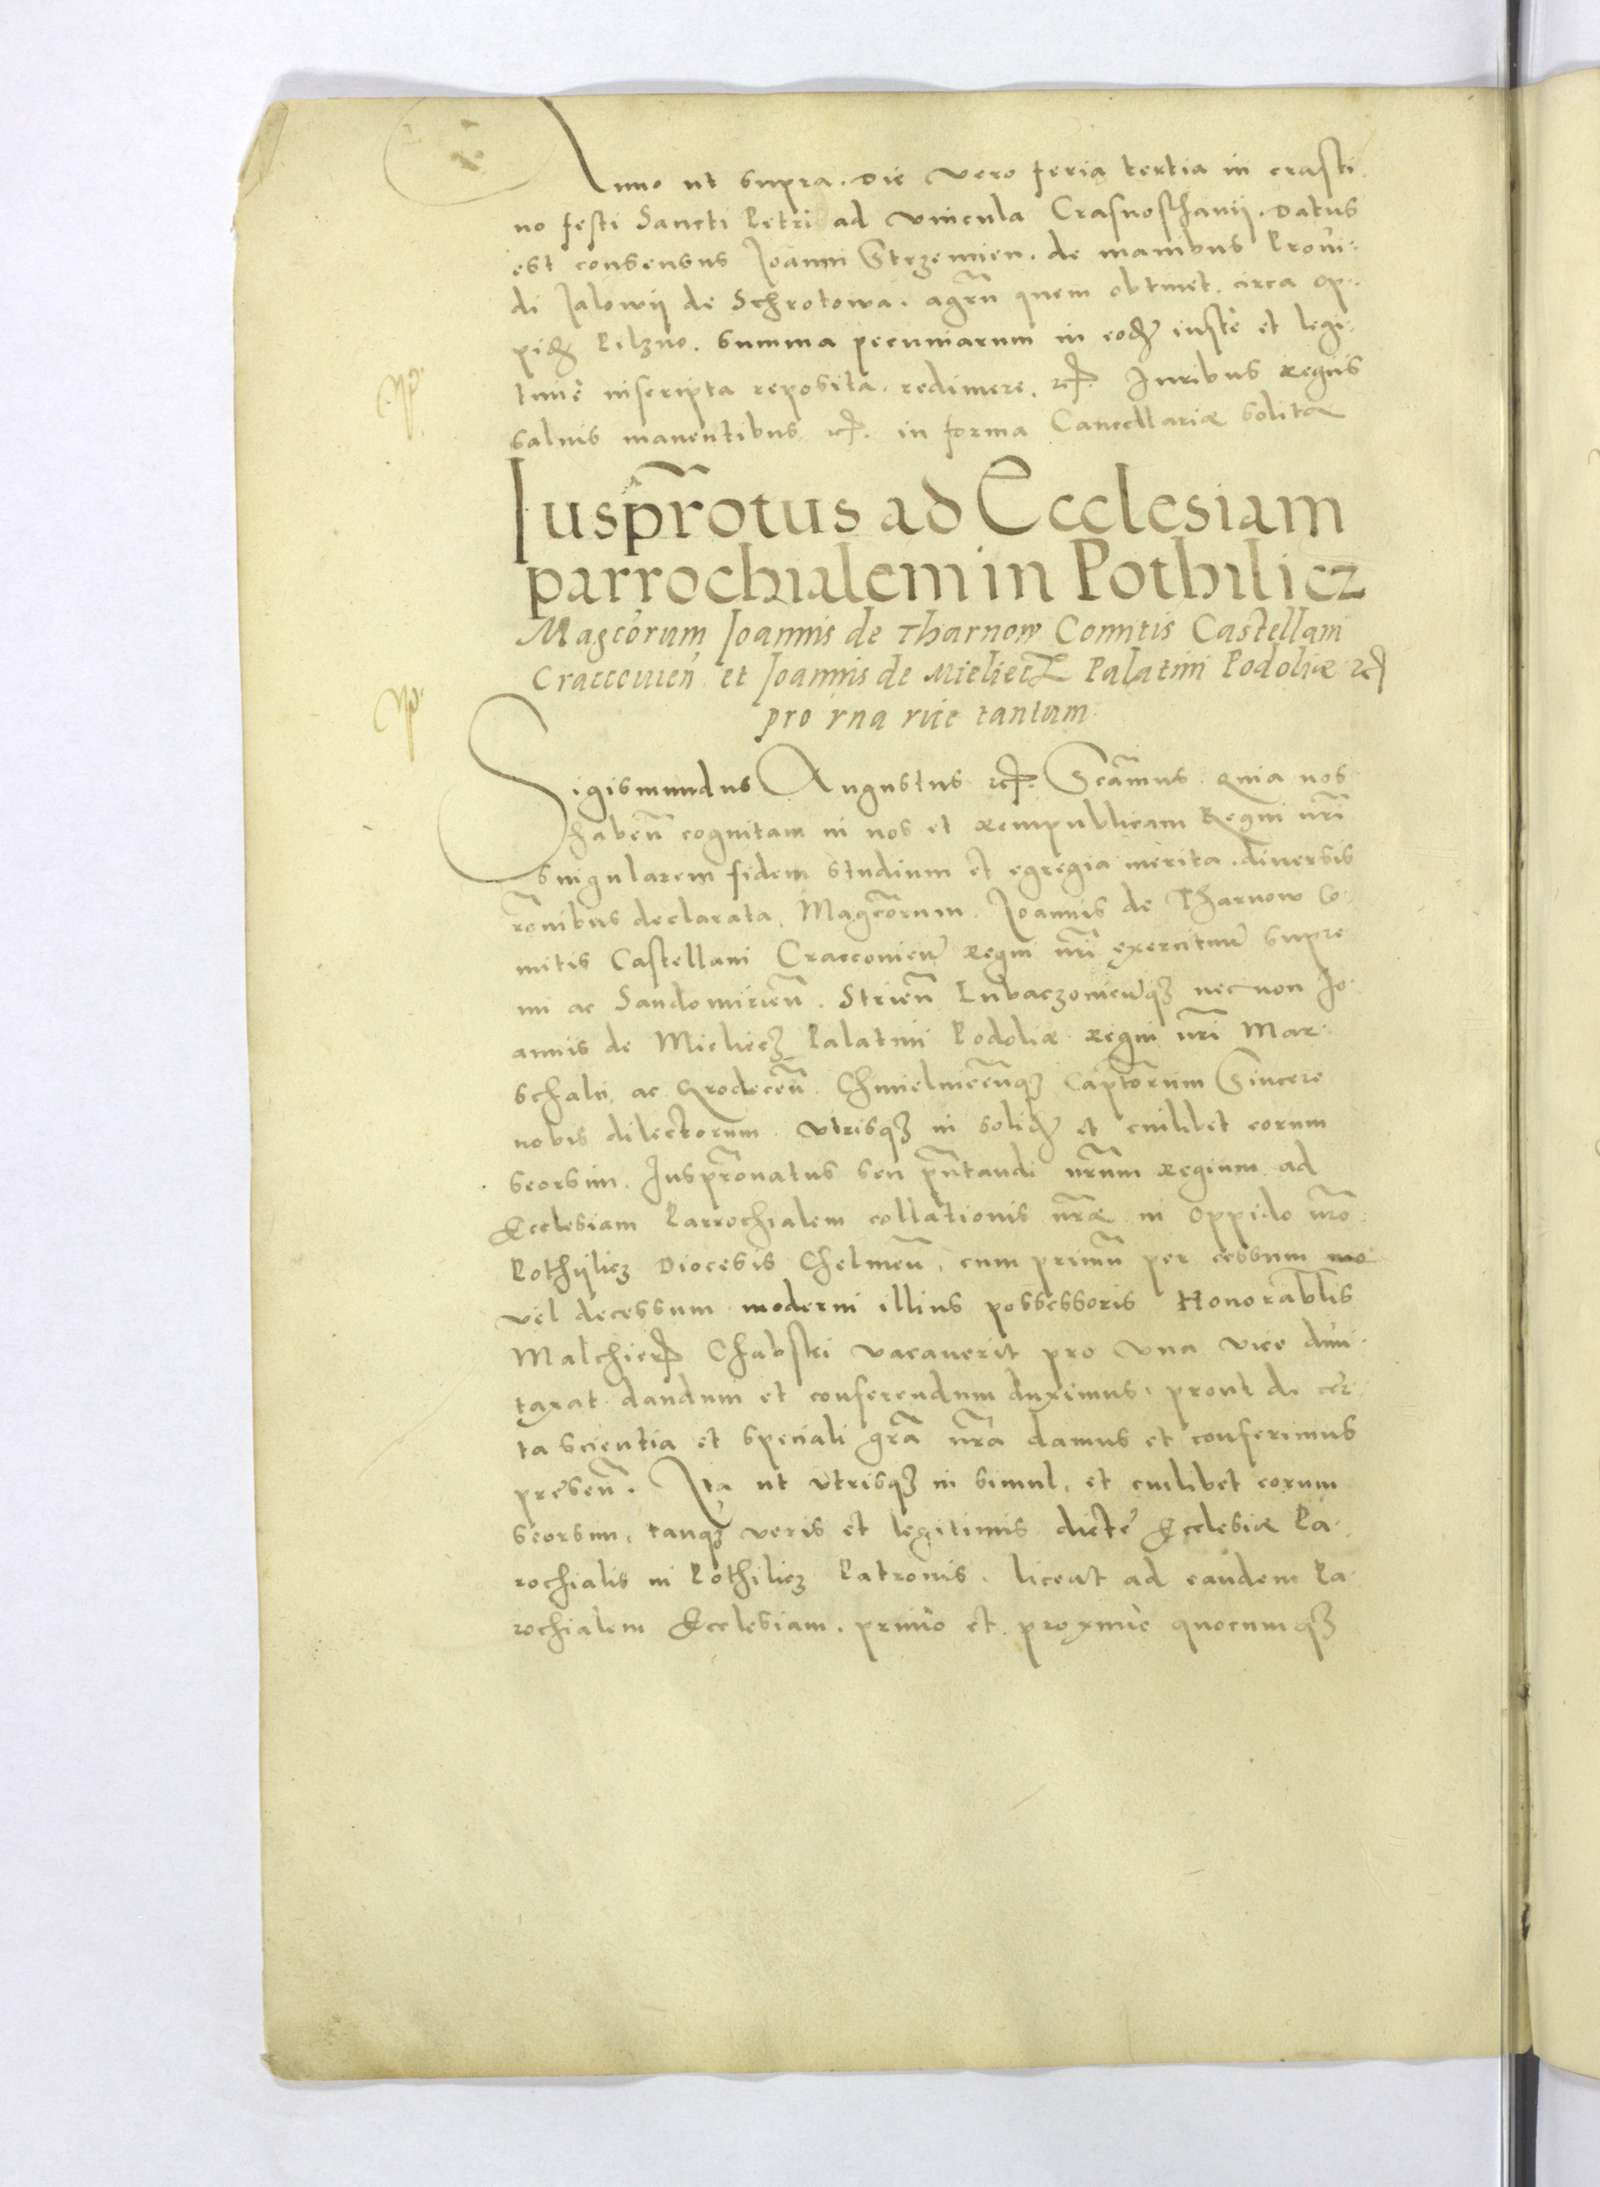 Anno ut supra. Die vero feria tertia in crasti
no festi Sancti Petri ad vincula Crasnosthavij. Datus
est consensus Joanni Strzemien. de manibus Provi-
di Jalowij de Schrotowa. agrũ quem obtinet. circa op-
pid Pilzno. summa pecuniarum in eod iustè et legi-
timè inscripta reposita. redimere, etc. Juribus regiis
salvis manentibus etc. in forma Cancellariæ solita
Iusprõtus ad Ecclesiam
parrochialem in Pothilicz
Magcorum Joannis de Tharnow Comitis Castellani
Craccovien et Joannis de Mieliecz Palatini Podoliæ etc
pro vna vice tantum
Sigismundus Augustus etc. Scãmus. Quia nos
habeñ cognitam in nos et rempublicam Regni nr̃i
singularem fidem studium et egregia merita. diversis
rõnibus declarata. Magcorum. Joannis de Tharnow Co-
mitis Castellani Cracconien regni nr̃i exercituũ supre
mi ac Sandomirieñ. Strieñ Lubaczovienqz necnon Jo-
annis de Mieliecz Palatini Podoliæ regni nr̃i Mar-
schalci ac Grodeceñ. Chmielniceñqz Captorum Sincere
nobis dilectorum. Utrisqz in solid et cuilibet eorum
seorsim. Jusprõnatus seu pñtandi nr̃um regium ad
Ecclesiam Parrochialem collationis nr̃æ in Oppido nr̃o
Pothylicz Diocesis Chelmeñ, cum primũ per cessum mo
vel decessum moderni illius possessoris Honorablis
Malchier Chabski vacaverit pro vna vice dun-
taxat dandum et conferendum duximus. prout de cer-
ta scientia et speciali gr̃a nr̃a damus et conferimus
preseñ. Ita ut utrisqz in simul, et cuilibet eorum
seorsim, tanqz veris et legitimis dicte Ecclesiæ Pa-
rochialis in Pothilicz Patronis. liceat ad eandem Pa-
rochialem Ecclesiam. primò et proximè quocumqz